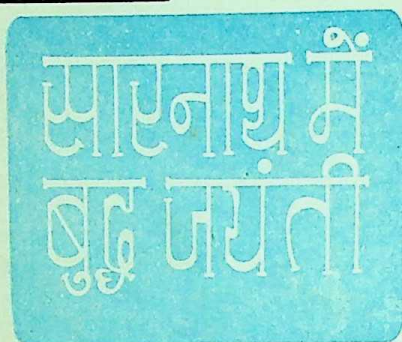 सारनाथ में
बुद्ध जयंती